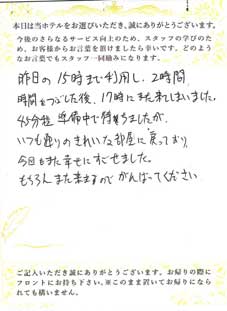 本日は当ホテルをお選びいただき、誠にありがとうございます。
今後のさらなるサービス向上のため、スタッフの学びのた
め、お客様からお言葉を頂けましたら幸いです。どのよう
なお言葉でもスタッフ一同励みになります。
昨日の15時まで利用し、2時間
時間をつぶした後、17時にまた来てしまいました。
45分程準備中で待ちましたが、
いつも通りのきれいな部屋に戻っており
今日もまた幸せにすごせました。
もちろんまた来るので がんばってください
ご記入いただき誠にありがとうございます。お帰りの際に
フロントにお持ち下さい。※このまま置いてお帰りになら
れても構いません。